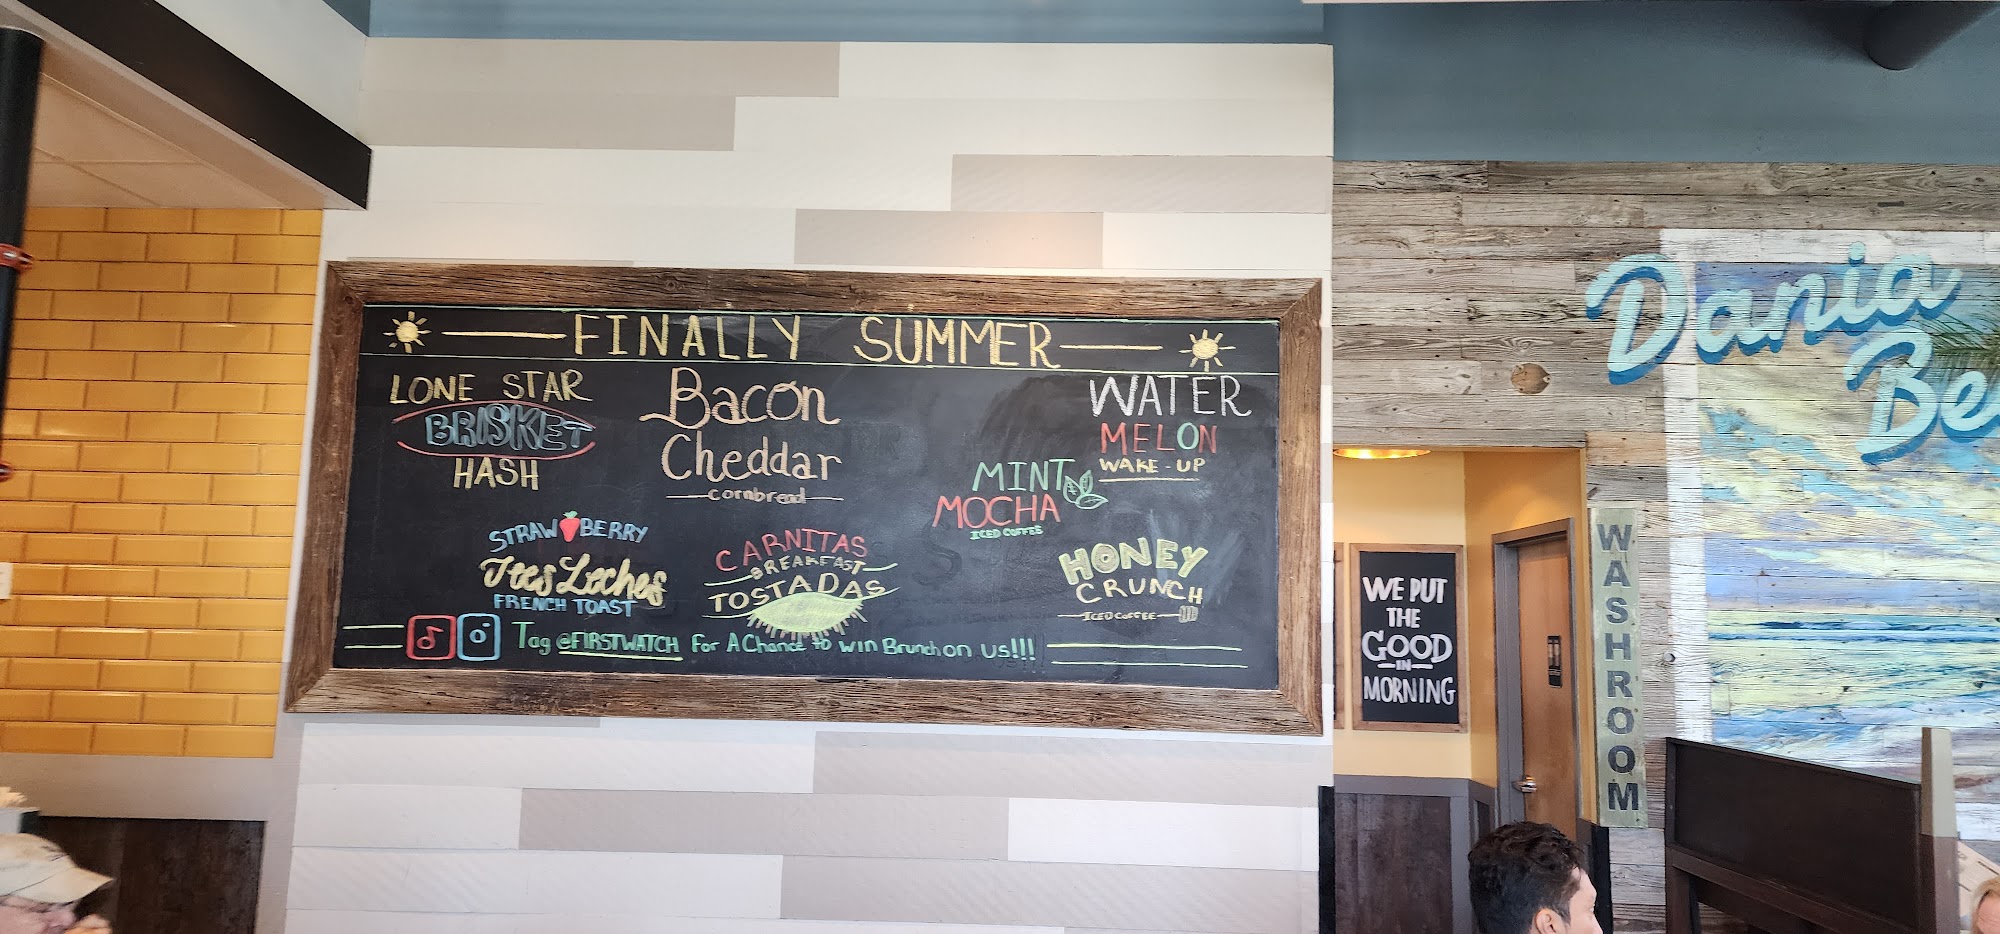 FINALLY SUMMER
LONE STAR
BRISKET
HASH
Bacon
Cheddar
cornbread
WATER
MELON
WAKE-UP
MINT
MOCHA
ICED COFFEE
STRAWBERRY
Tres Leches
FRENCH TOAST
CARNITAS
BREAKFAST
TOSTADAS
HONEY
CRUNCH
ICED COFFEE
Tag @FIRSTWATCH For A Chance to win Brunch on us!!!
WE PUT
THE
GOOD
IN
MORNING
WASHROOM
Dania
Be